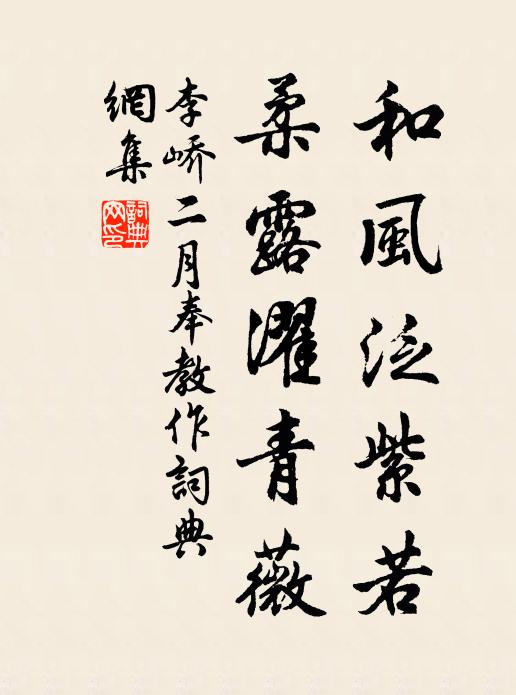 和風泛紫若
柔露濯青薇
李嶠二月奉教作詞典
網集
詞典網印